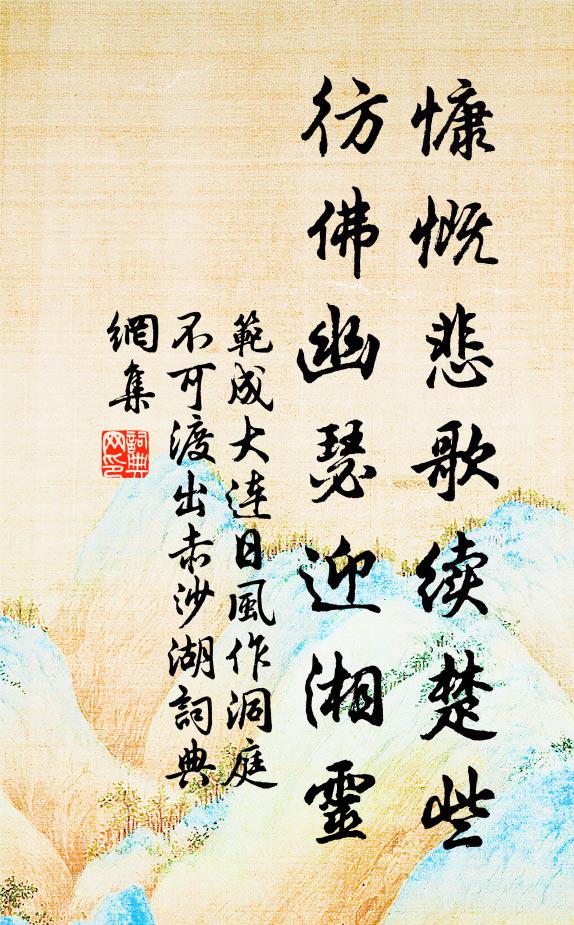 慷慨悲歌续楚些
彷佛幽瑟迎湘靈
範成大連日風作洞庭
不可渡出赤沙湖詞典
網集
詞典網印